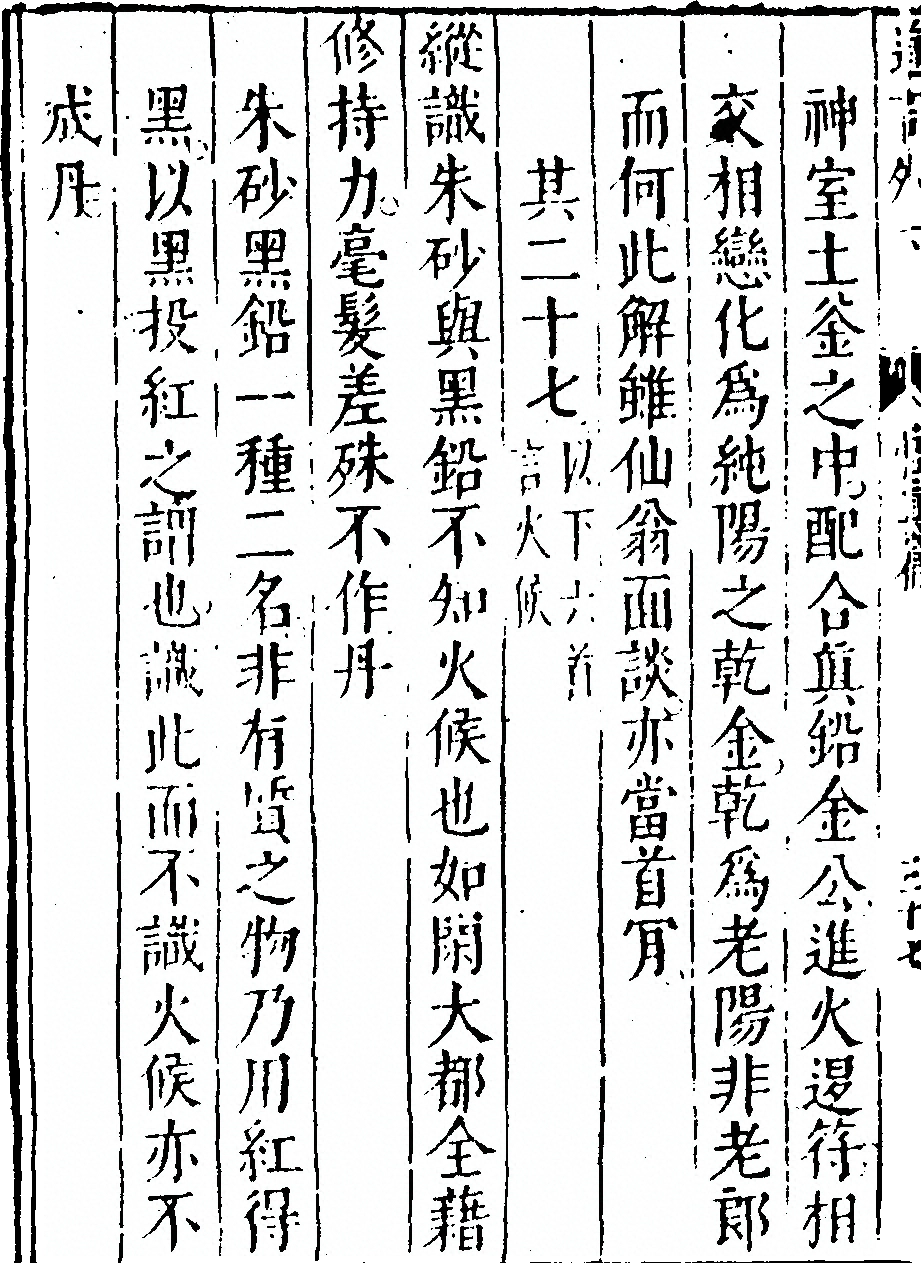 神室土釜之中配合眞鉛金公進火退符相
交相戀化爲純陽之乾金乾爲老陽非老郎
而何此解雖仙翁面談亦當首肎
其二十七以下六首言火候
縱識朱砂與黑鉛不知火候也如閑大都全藉
修持力毫髮差殊不作丹
朱砂黑鉛一種二名非有質之物乃用紅得
黑以黑投紅之謂也識此而不識火候亦不
成丹